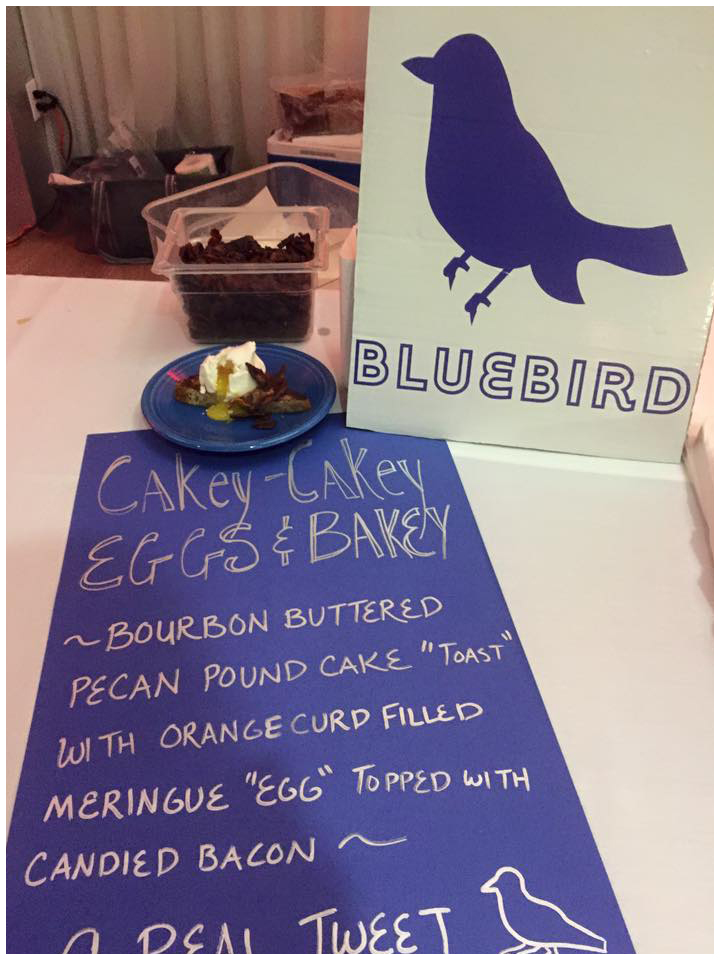 BLUEBIRD
CAKEY-CAKEY
EGGS & BAKEY
~BOURBON BUTTERED
PECAN POUND CAKE "TOAST"
WITH ORANGE CURD FILLED
MERINGUE "EGG" TOPPED WITH
CANDIED BACON ~
A REAL TWEET